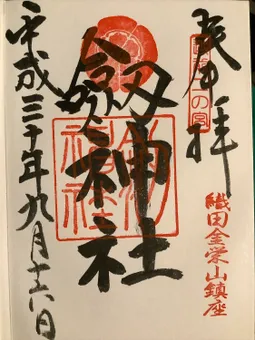 奉拝
織田金栄山鎮座
劔神社
劔神社
平成三十年九月十六日